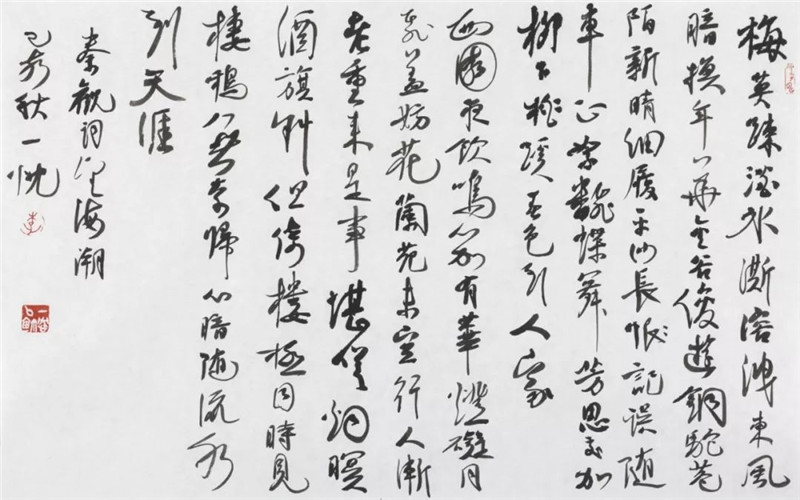 梅英疎澹冰澌溶洩東風
暗換年華金谷俊遊銅駝巷
陌新晴細履平沙長恨記誤隨
車正絮翻蝶舞芳思交加
柳下桃蹊春色到人家
西園夜飲鳴笳有華燈礙月
飛蓋妨花蘭苑未空行人漸
老重來是事堪嗟烟暝
酒旗斜但倚樓極目時見
棲鴉無奈歸心暗隨流水
到天涯
秦觀詞望海潮
己亥秋一忱